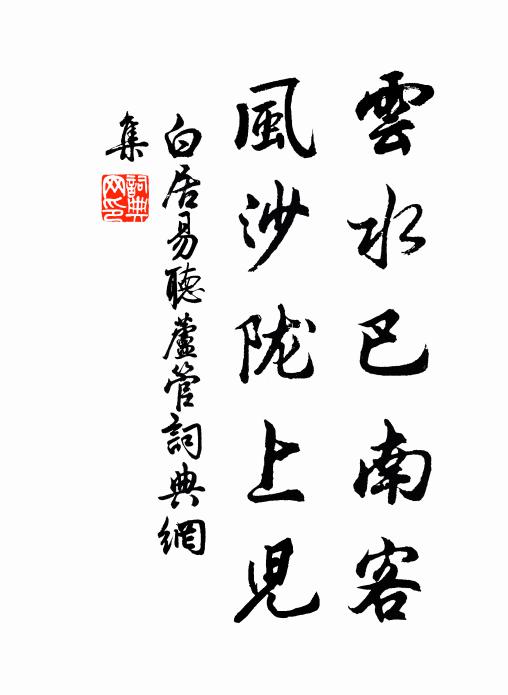 雲水巴南客
風沙陇上児
白居易聽蘆管詞典網
集
詞典
网印